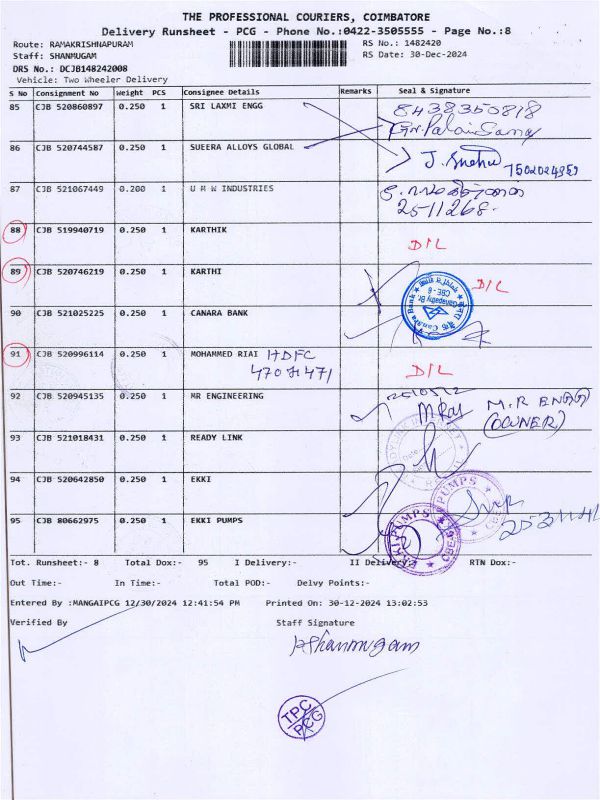 THE PROFESSIONAL COURIERS, COIMBATORE
Delivery Runsheet - PCG - Phone No.:0422-3505555 - Page No.:8
Route: RAMAKRISHNAPURAM
RS No.: 1482420
Staff: SHANMUGAM
RS Date: 30-Dec-2024
DRS No.: DCJB148242008
Vehicle: Two Wheeler Delivery
S No Consignment No Weight PCS Consignee Details Remarks Seal & Signature
85 CJB 520860897 0.250 1 SRI LAXMI ENGG 8438350818
86 CJB 520744587 0.250 1 SUEERA ALLOYS GLOBAL
87 CJB 521067449 0.200 1 U M W INDUSTRIES
2511268.
88 CJB 519940719 0.250 1 KARTHIK D/L
89 CJB 520746219 0.250 1 KARTHI D/L
90 CJB 521025225 0.250 1 CANARA BANK
Canara Bank
CBE - 6
91 CJB 520996114 0.250 1 MOHAMMED RIAI HDFC D/L
47071471
92 CJB 520945135 0.250 1 MR ENGINEERING M.R ENGG
(OWNER)
93 CJB 521018431 0.250 1 READY LINK
94 CJB 520642850 0.250 1 EKKI
PUMPS
95 CJB 80662975 0.250 1 EKKI PUMPS
EKKI PUMPS
Tot. Runsheet:- 8 Total Dox:- 95 I Delivery:- II Delivery:- RTN Dox:-
Out Time:- In Time:- Total POD:- Delvy Points:-
Entered By :MANGAIPCG 12/30/2024 12:41:54 PM Printed On: 30-12-2024 13:02:53
Verified By Staff Signature
Shanmugam
TPC
PCG